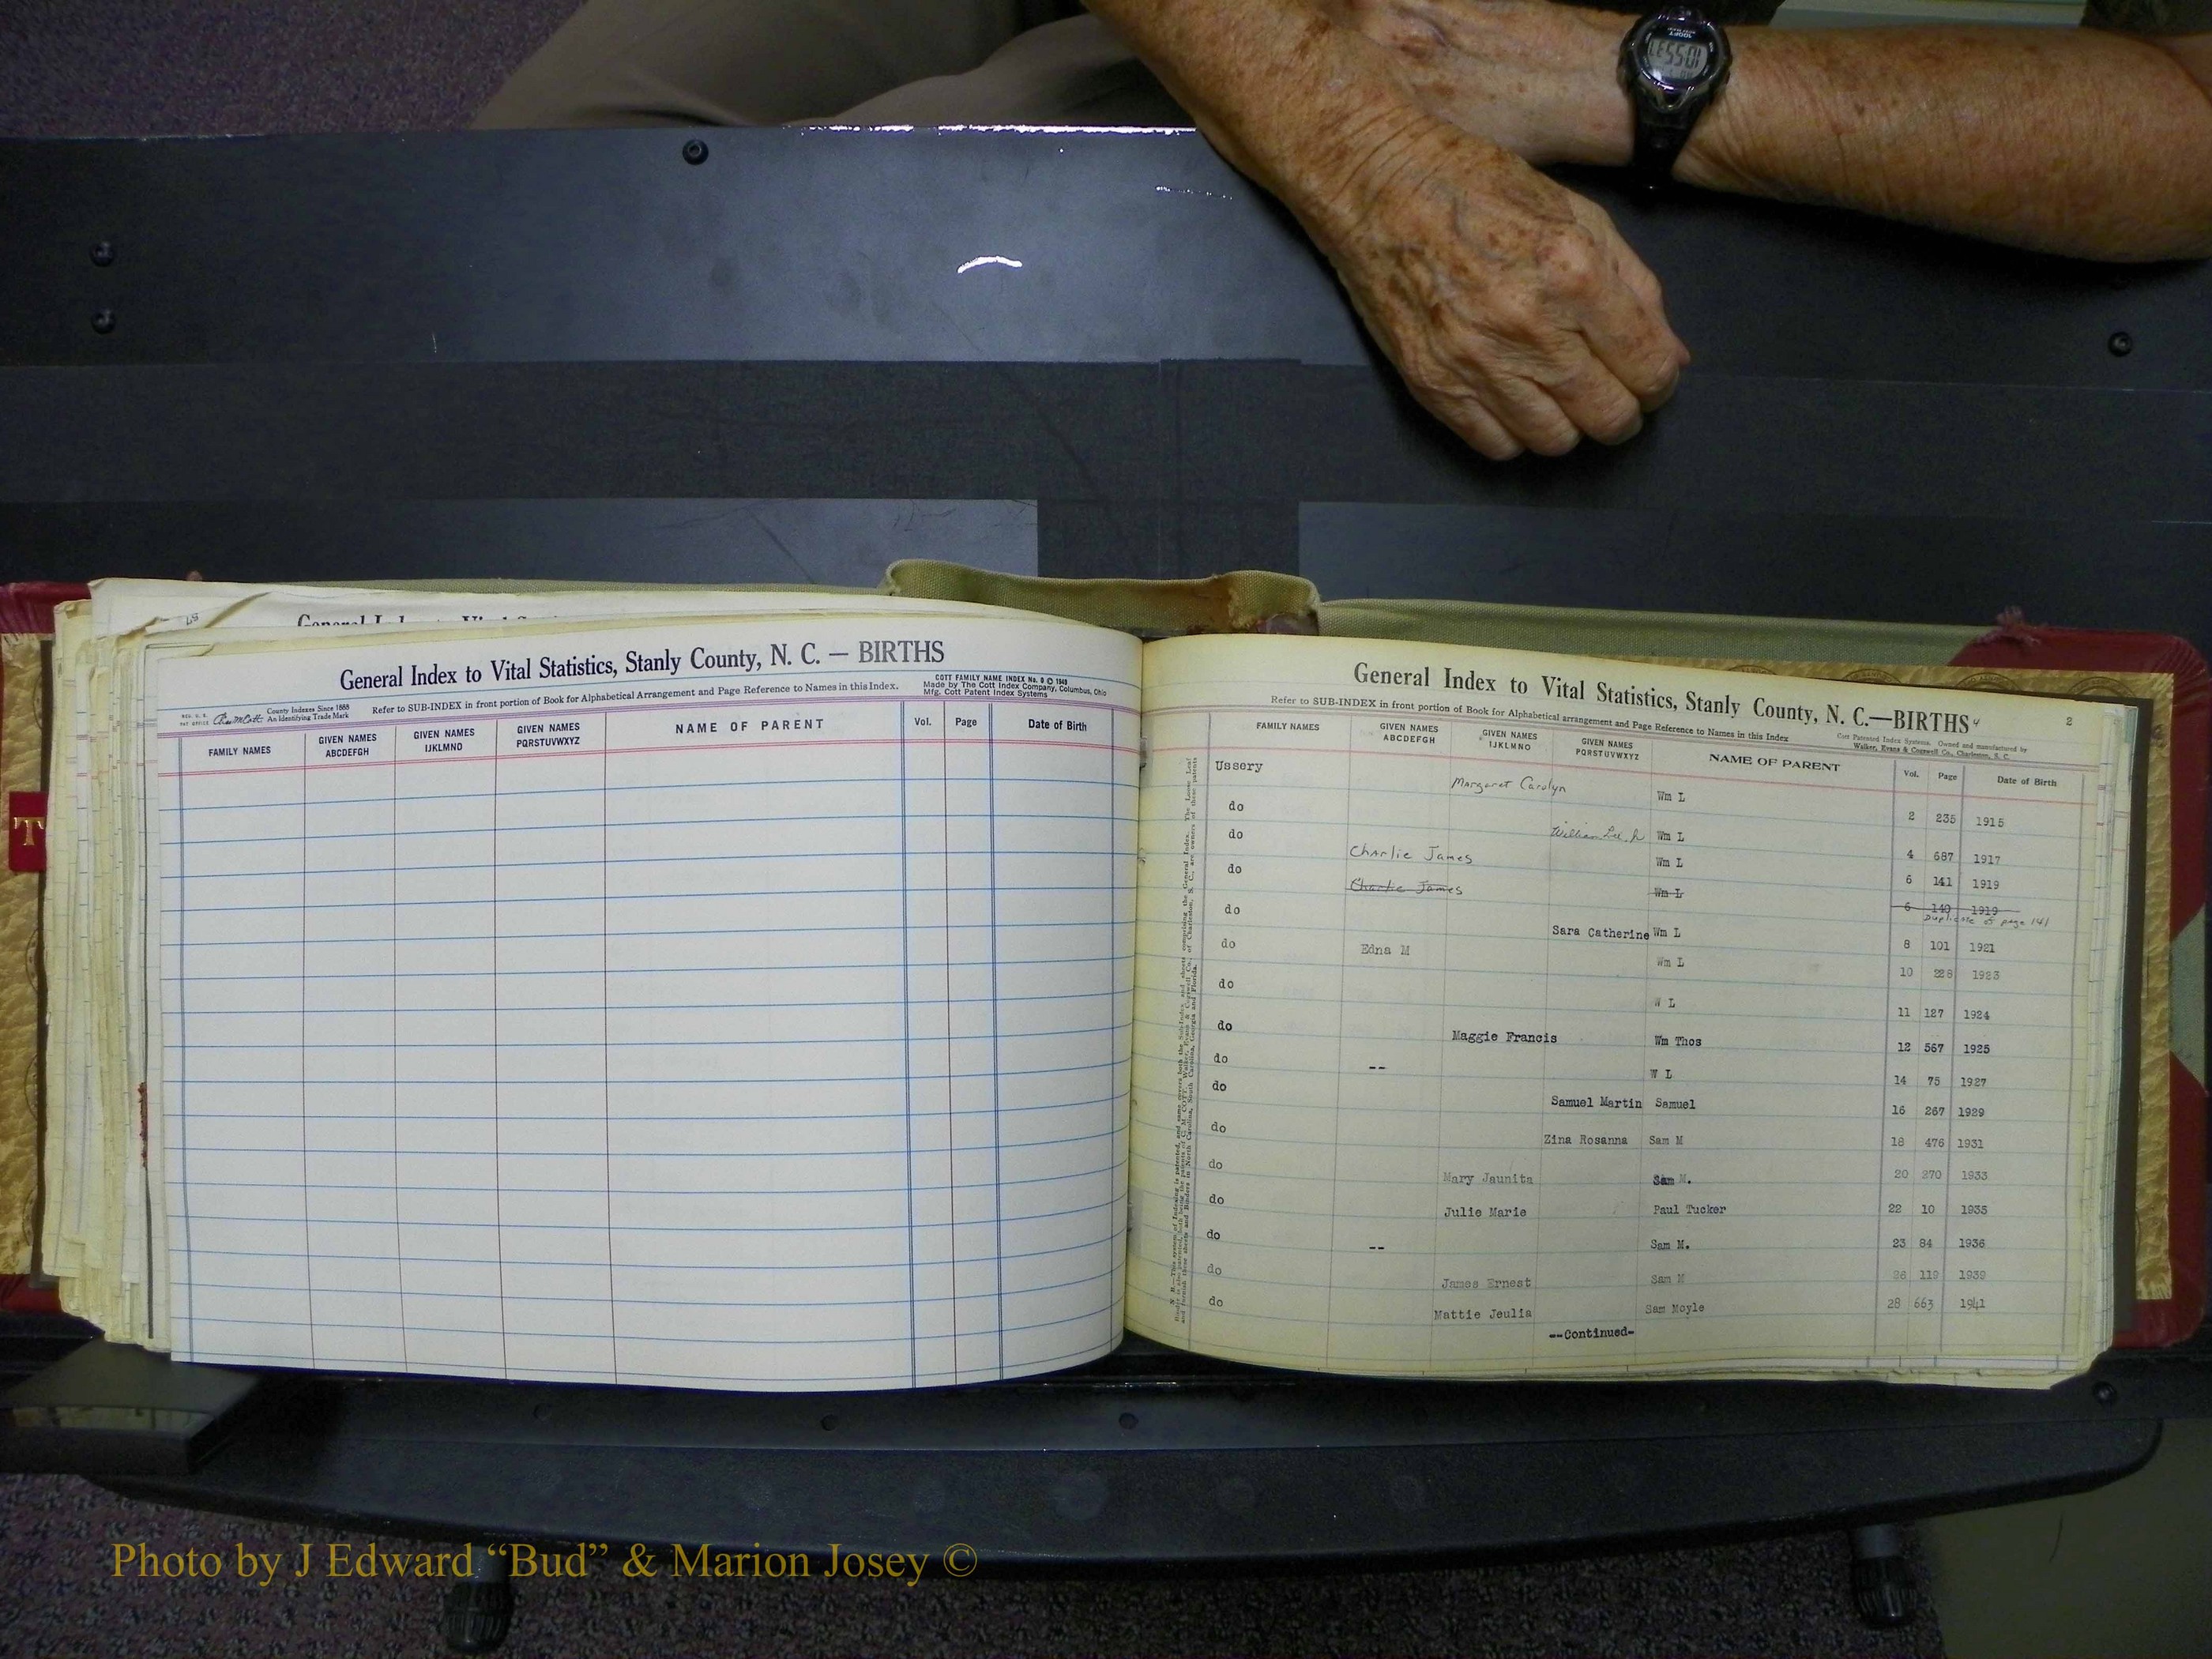 General Index to Vital Statistics, Stanly County, N. C. — BIRTHS
COTT FAMILY NAME INDEX No. 9 © 1949
Made by The Cott Index Company, Columbus, Ohio
Mfg. Cott Patent Index Systems
County Indexes Since 1888
An Identifying Trade Mark
Refer to SUB-INDEX in front portion of Book for Alphabetical Arrangement and Page Reference to Names in this Index.
FAMILY NAMES GIVEN NAMES ABCDEFGH GIVEN NAMES IJKLMNO GIVEN NAMES PQRSTUVWXYZ NAME OF PARENT Vol. Page Date of Birth
T
General Index to Vital Statistics, Stanly County, N. C.—BIRTHS 4 2
Refer to SUB-INDEX in front portion of Book for Alphabetical arrangement and Page Reference to Names in this Index
Cott Patented Index Systems. Owned and manufactured by
Walker, Evans & Cogswell Co., Charleston, S. C.
FAMILY NAMES GIVEN NAMES ABCDEFGH GIVEN NAMES IJKLMNO GIVEN NAMES PQRSTUVWXYZ NAME OF PARENT Vol. Page Date of Birth
Ussery Margaret Carolyn Wm L 2 235 1915
do William Lee, Jr Wm L 4 687 1917
do Charlie James Wm L 6 141 1919
do Charlie James Wm L 6 140 1919
Duplicate of page 141
do Sara Catherine Wm L 8 101 1921
do Edna M Wm L 10 228 1923
do W L 11 127 1924
do Maggie Francis Wm Thos 12 567 1925
do -- W L 14 75 1927
do Samuel Martin Samuel 16 267 1929
do Zina Rosanna Sam M 18 476 1931
do Mary Jaunita Sam M. 20 270 1933
do Julie Marie Paul Tucker 22 10 1935
do -- Sam M. 23 84 1936
do James Ernest Sam M 26 119 1939
do Mattie Jeulia Sam Moyle 28 663 1941
--Continued-
Photo by J Edward “Bud” & Marion Josey ©